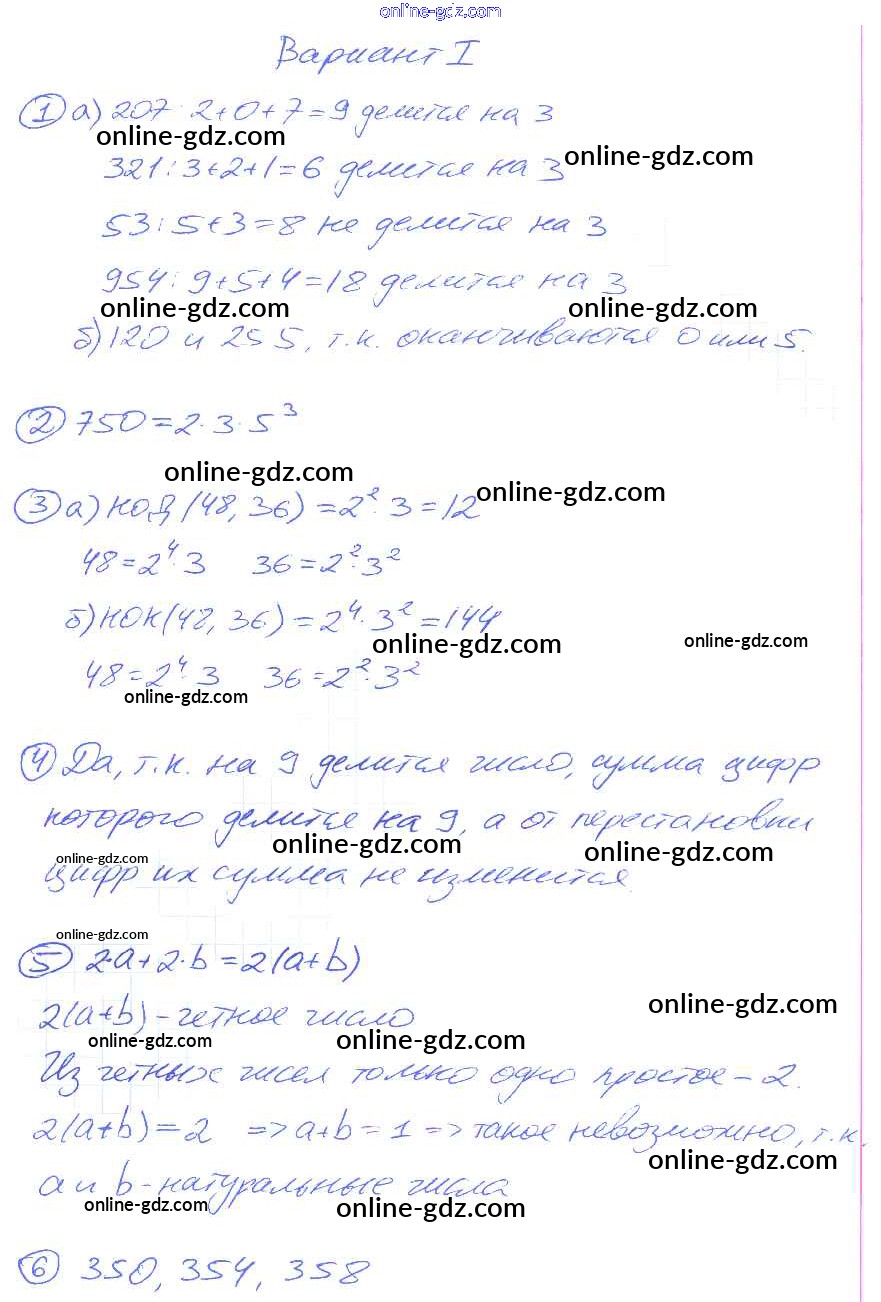 online-gdz.com
Вариант I
① а) 207 2+0+7=9 делится на 3
online-gdz.com
online-gdz.com
321: 3+2+1=6 делится на 3
53: 5+3=8 не делится на 3
954: 9+5+4=18 делится на 3
online-gdz.com
online-gdz.com
б) 120 и 255, т.к. оканчиваются 0 или 5.
② 750=2·3·5³
online-gdz.com
online-gdz.com
③ а) НОД (48, 36) = 2²·3=12
48=2⁴·3 36=2²·3²
б) НОК(48, 36)=2⁴·3²=144
online-gdz.com
online-gdz.com
48=2⁴·3 36=2²·3²
online-gdz.com
④ Да, т.к. на 9 делится число, сумма цифр
которого делится на 9, а от перестановки
online-gdz.com
online-gdz.com
online-gdz.com
цифр их сумма не изменится.
online-gdz.com
⑤ 2·a+2·b=2(a+b)
online-gdz.com
2(a+b) - четное число
online-gdz.com
online-gdz.com
Из четных чисел только одно простое - 2.
2(a+b)=2 => a+b=1 => такое невозможно, т.к.
online-gdz.com
a и b - натуральные числа
online-gdz.com
online-gdz.com
⑥ 350, 354, 358